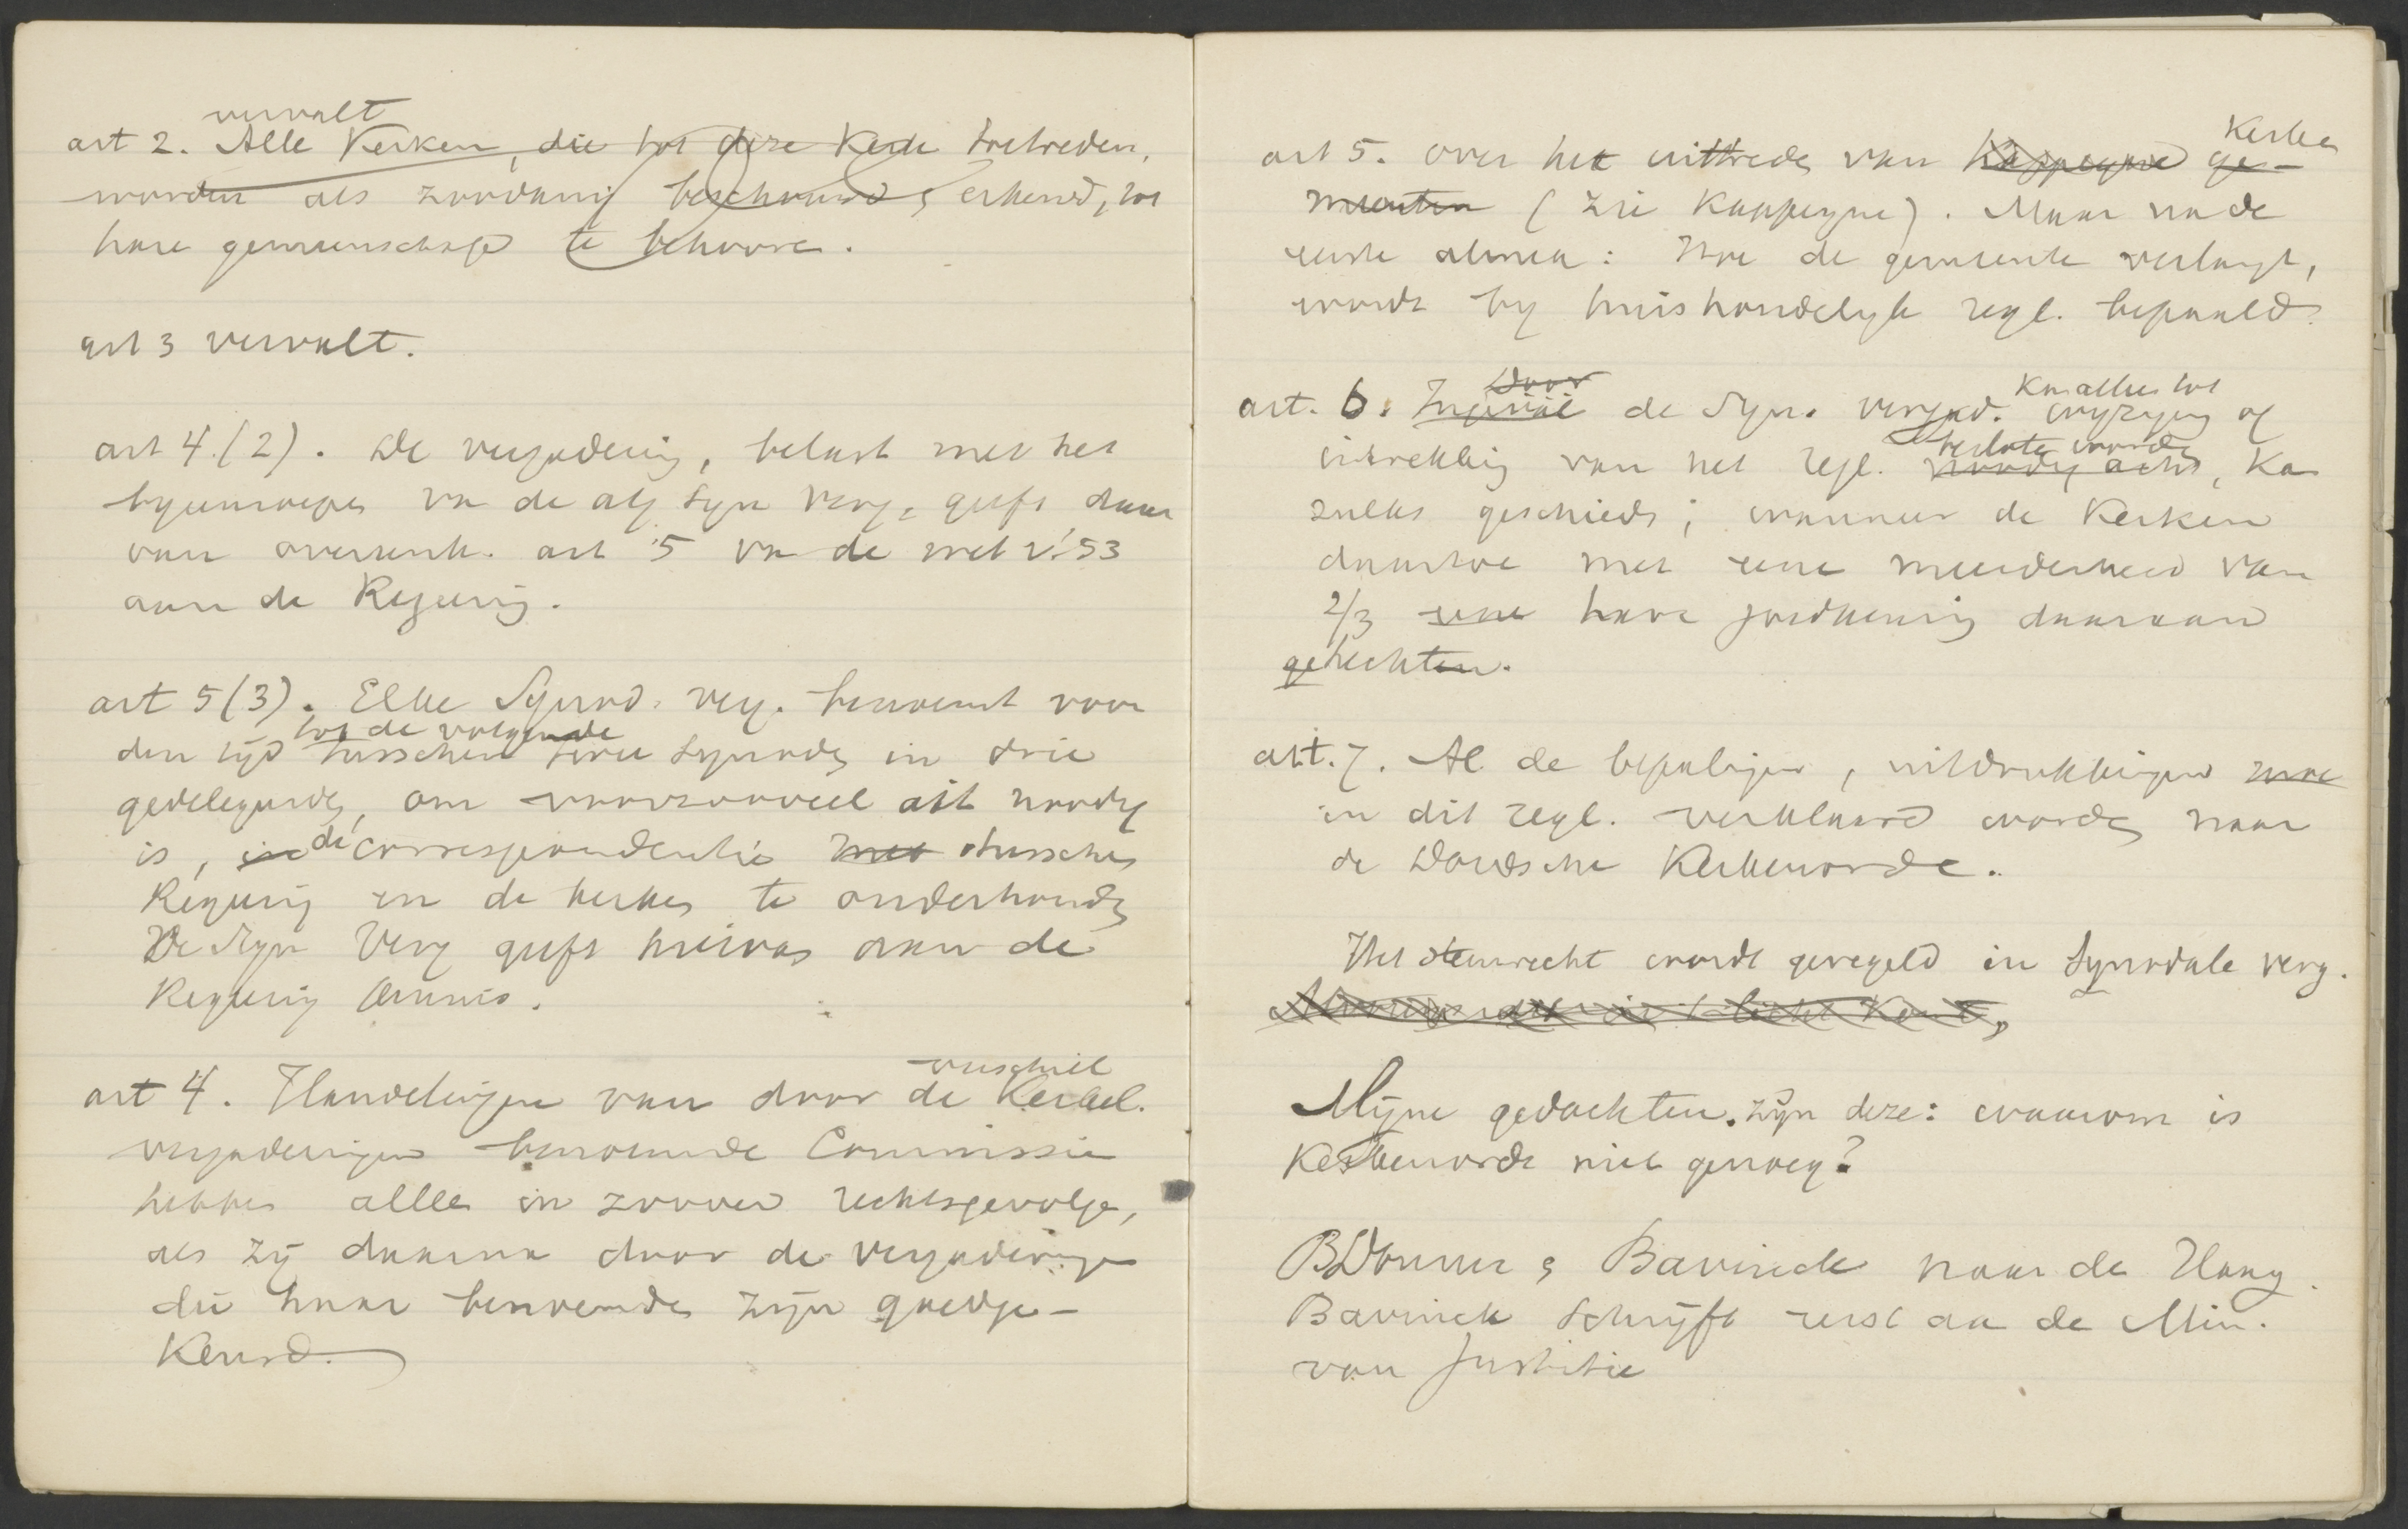 vervalt
art 2. Alle Kerken, die tot deze Kerk toetreden,
worden als zoodanig beschouwd & erkend, tot
hare gemeenschap te behooren.
art 3 vervalt.
art 4 (2). De vergadering, belast met het
byeenroepen van de alg Syn Verg, geeft daar
van overeenk. art 5 van de wet v. '53
aan de Regering.
art 5 (3). Elke Synod. verg. benoemt voor
tot de volgende
den tijd tusschen twee Synoden in drie
gedelegeerden, om voorzooveel dit noodig
is, in de correspondentie met tusschen
Regering en de kerken te onderhouden
De Syn Verg geeft hiervan aan de
Regering kennis.
verschil
art 4. Handelingen van door de Kerkel.
vergaderingen benoemde Commissie
hebben alleen in zoover rechtsgevolgen,
als zij daarna door de vergaderingen
die haar benoemden zijn goedge-
keurd.
Kerken
art 5. over het uittreden van Kappeyne ge-
meenten (zie Kappeyne). Maar na de
eerste alinea: Hoe de gemeente verlangt,
wordt by huishoudelyk regl. bepaald.
Door
kan alleen tot
art. 6. Ingeval de Syn. vergad. wyziging of
besloten worden
intrekking van het regl. noodig acht, kan
zulks geschieden; wanneer de Kerken
daartoe met eene meerderheid van
2/3 eene hare goedkeuring daaraan
gehechten.
art. 7. Al de bepalingen, uitdrukkingen
in dit regl. verklaard worden naar
de Dordsche Kerkenorde.
Het stemrecht wordt geregeld in Synodale verg.
Mijne gedachten zijn deze: waarom is
Kerkenorde niet genoeg?
Donner & Bavinck naar den Haag.
Bavinck schrijft eerst aan de Min.
van Justitie